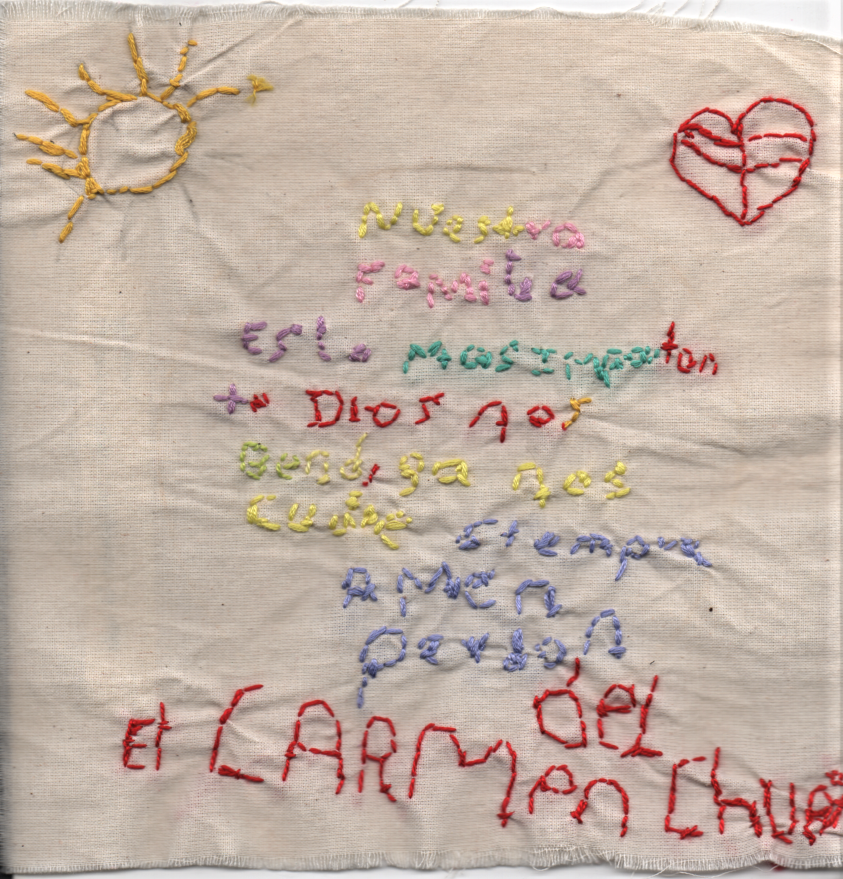 Nuestra
Familia
Esla mas impotan
t* Dios nos
Bendiga nos
Cuide Siempre
AMen
perdon
El CARMen del Chue